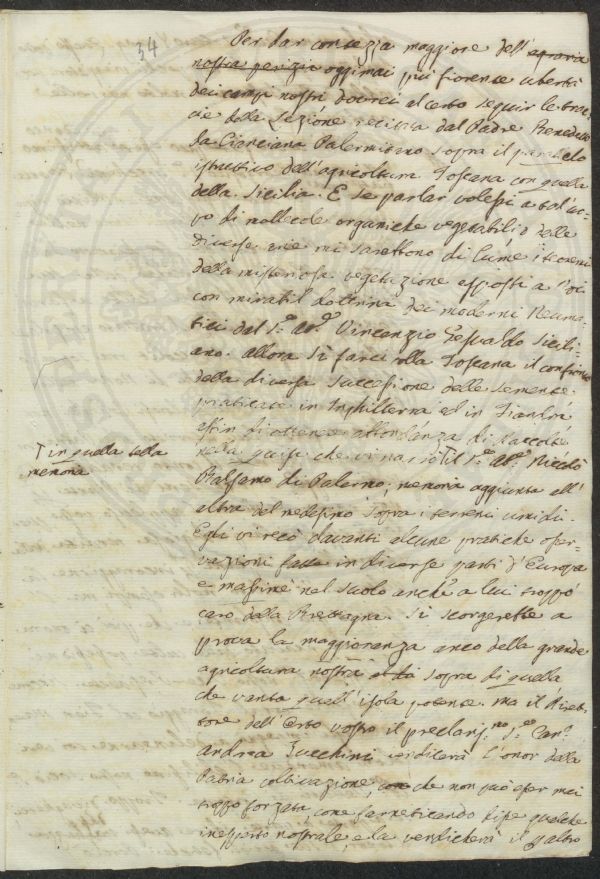 34
Per dar contezza maggiore dell' agraria
nostra perizia oggimai più fiorente ubertà
dei campi nostri dovrei al certo seguir le trac-
cie della Lezione recitata dal Padre Benedetto
da Cianciana Palermitano sopra il paralelo
istruttivo dell'agricoltura Toscana con quella
della Sicilia. E se parlar volessi a tal'uo-
po di mollecole organiche vegetabili o delle
diverse arie mi sarebbono di lume i teoremi
della misteriosa vegetazione esposti a Voi
con mirabil dottrina dei moderni Neuma-
tici dal S.r Ab.e Vincenzio Sicili-
ano. allora si farei colla Toscana il confronto
della diversa successione delle semente
praticate in Inghilterra ed in Fiandra
affin di ottenere abbondanza di raccolte
nella guisa che vi narrò il S.r Ab.e Niccolò
T in quella bella
memoria
Balsamo di Palermo. memoria aggiunta all'
altra del medesimo sopra i terreni umidi.
Egli vi recò davanti alcune pratiche osser-
vazioni fatte in diverse parti d'Europa
e massime nel suolo anche a lui troppo
caro della Brettagna. Si scorgerebbe a
prova la maggioranza anco della grande
agricoltura nostra sopra di quella
che vanta quell'isola potente. ma il Diret-
tore dell'Orto vostro il preclariss.mo S.r Can.co
Andrea Zucchini verdicherà l'onor della
Patria coltivazione, che non può esser mai
troppo forzata, come farneticando disse qualche
inesperto nostrale, e la vendicherà il